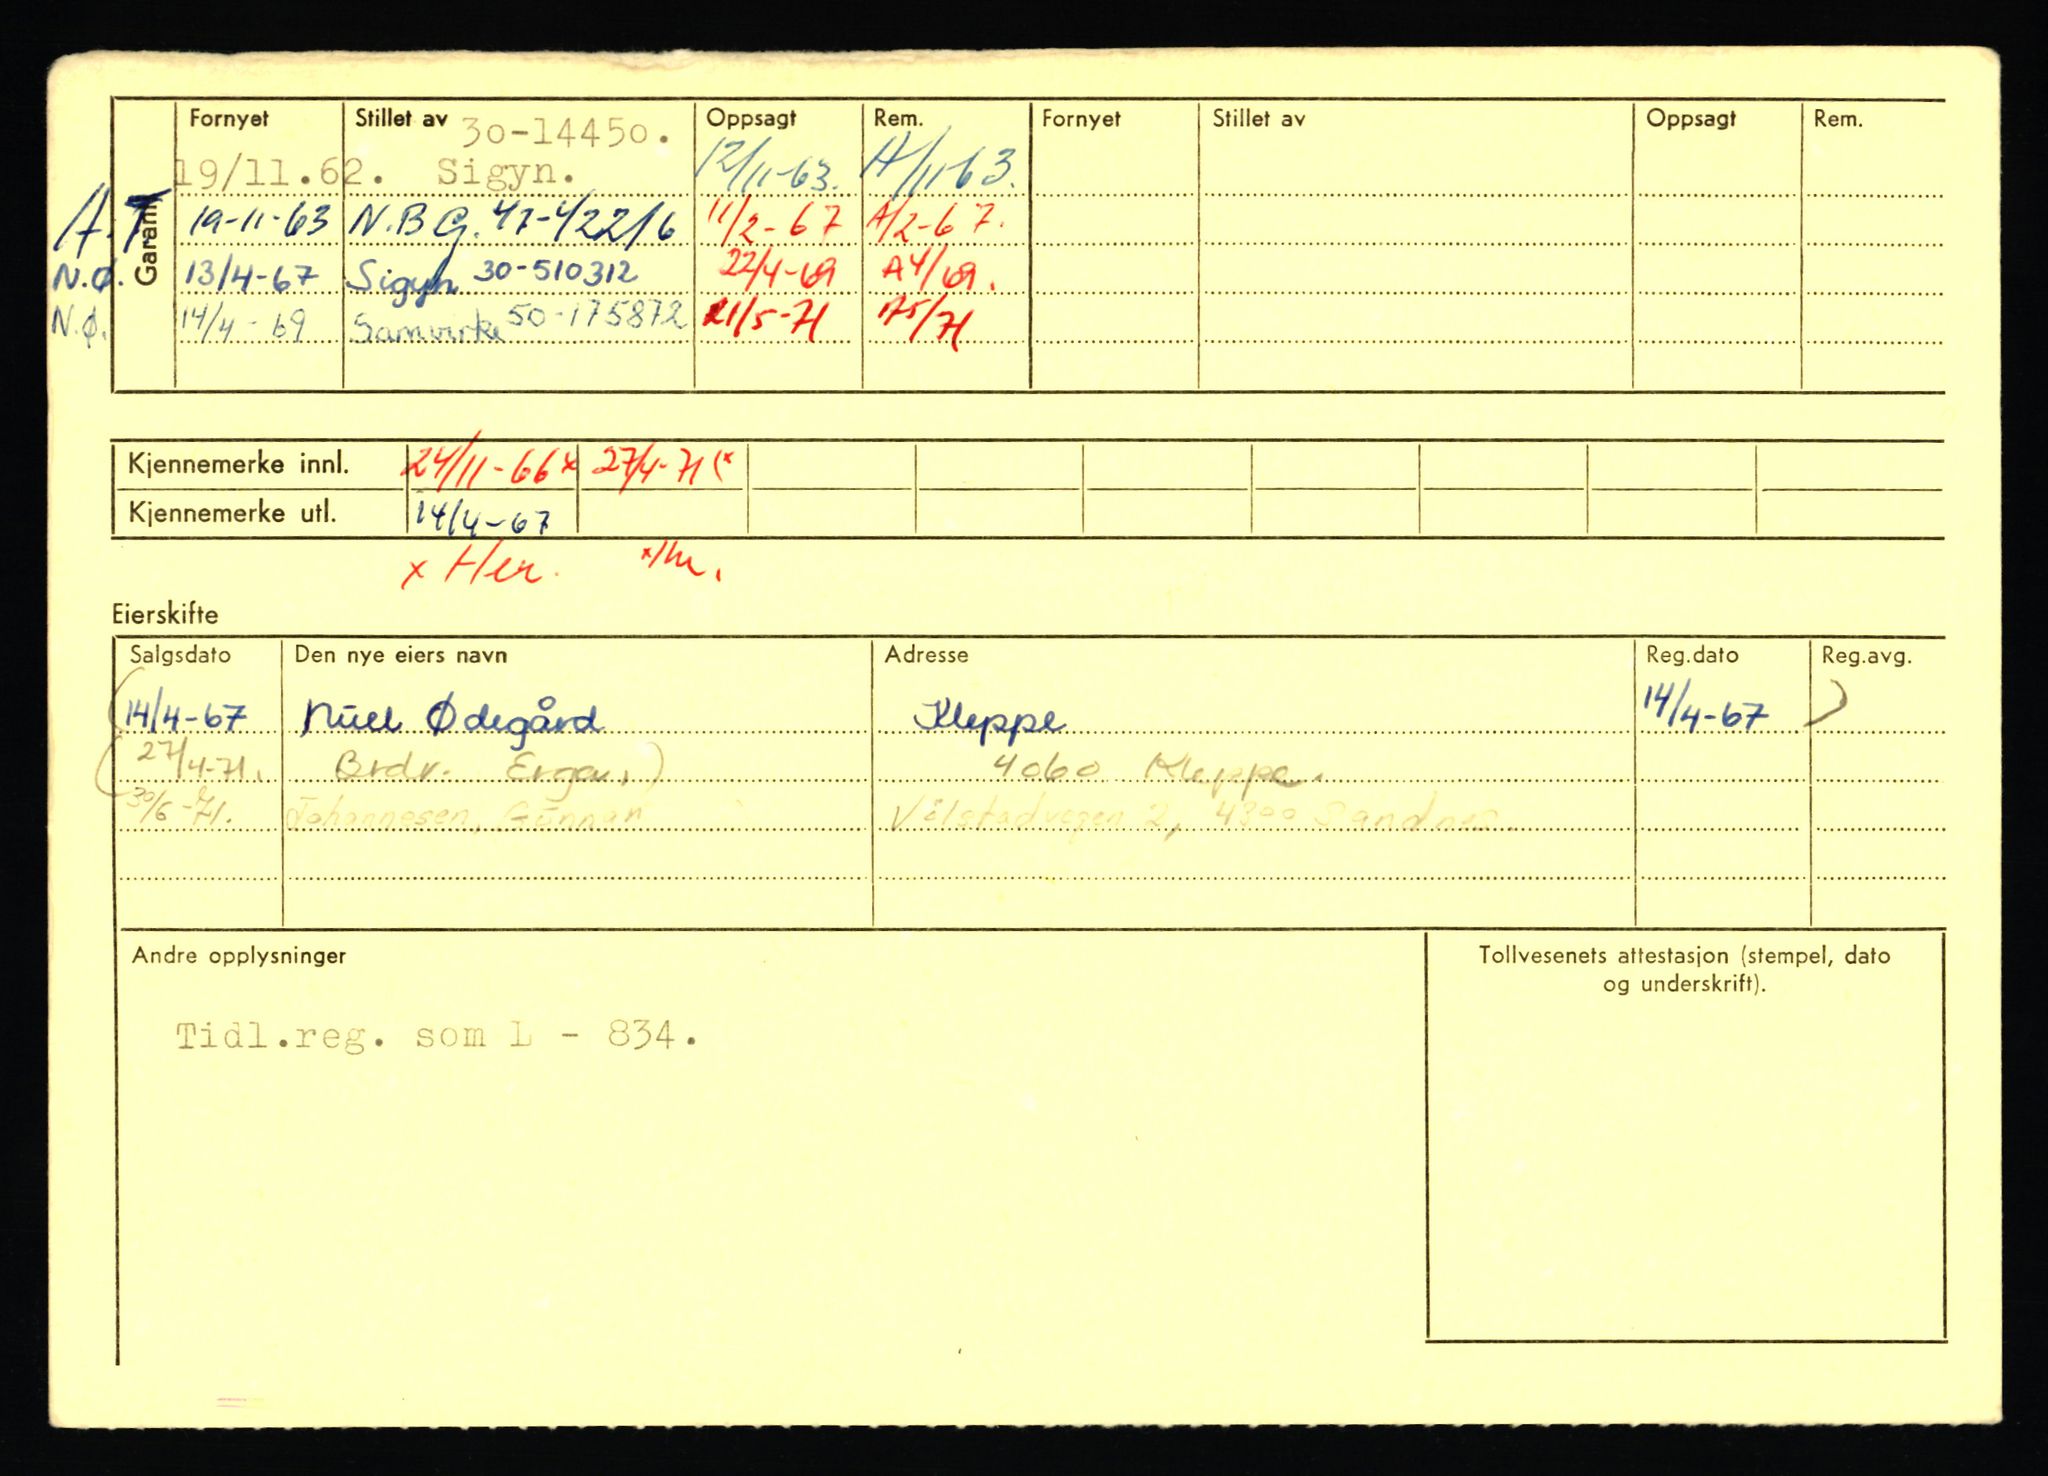 Fornyet Stillet av 30-14450. Oppsagt Rem. Fornyet Stillet av Oppsagt Rem.
19/11.62. Sigyn. 12/11-63. A/11-63.
A.T 19-11-63 N.B G. 47-422/6 11/2-67 A/2-67.
N.Ø. 13/4-67 Sigyn 30-510312 22/4-69 A4/69.
N.Ø. 14/4-69 Samvirke 50-175872 21/5-71 A5/71
Garanti
Kjennemerke innl. 24/11-66 x 27/4-71 (x
Kjennemerke utl. 14/4-67
x Her.
Eierskifte
Salgsdato Den nye eiers navn Adresse Reg.dato Reg.avg.
(14/4-67 Ødegård Kleppe 14/4-67 )
(27/4-71. Brdr. Erga,) 4060 Kleppe.
30/6-71. Johannesen, Gunnar 2, 4300 Sandnes.
Andre opplysninger
Tollvesenets attestasjon (stempel, dato
og underskrift).
Tidl.reg. som L - 834.